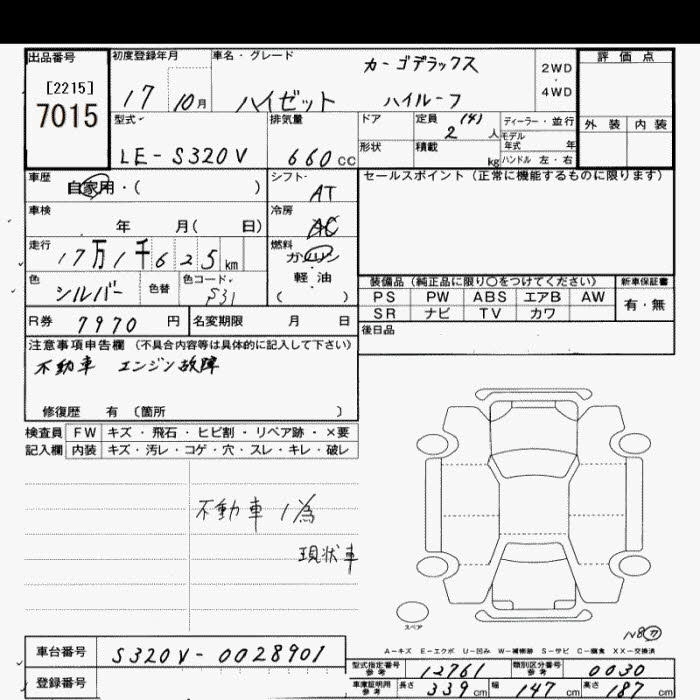 出品番号 初度登録年月 車名・グレード カーゴデラックス 2WD・4WD 評価点
[2215]
7015
17 10月 ハイゼット ハイルーフ
型式 排気量 ドア 定員 (4) 2人 ディーラー・並行 外装 内装
モデル年式 年
LE-S320V 660CC 形状 積載 kg ハンドル 左・右
車歴 自家用・( ) シフト AT セールスポイント(正常に機能するものに限ります)
車検 年 月( 日) 冷房 AC
走行 17万1千625km 燃料 ガソリン
軽油
( )
色 シルバー 色替 色コード S31
装備品(純正品に限り○をつけてください) 新車保証書
PS PW ABS エアB AW 有・無
SR ナビ TV カワ
R券 7970円 名変期限 月 日 後日品
注意事項申告欄(不具合内容等は具体的に記入して下さい)
不動車 エンジン故障
修復歴 有 (箇所 )
検査員 FW キズ・飛石・ヒビ割・リペア跡・×要
記入欄 内装 キズ・汚レ・コゲ・穴・スレ・キレ・破レ
不動車ノ為
現状車
スペア
A-キズ E-エクボ U-凹み W-補修跡 S-サビ C-腐食 XX-交換済
車台番号 S320V-0028901
型式指定番号 参考 12761 類別区分番号 参考 0030
登録番号
車庫証明用 参考 長さ 339cm 幅 147cm 高さ 187cm